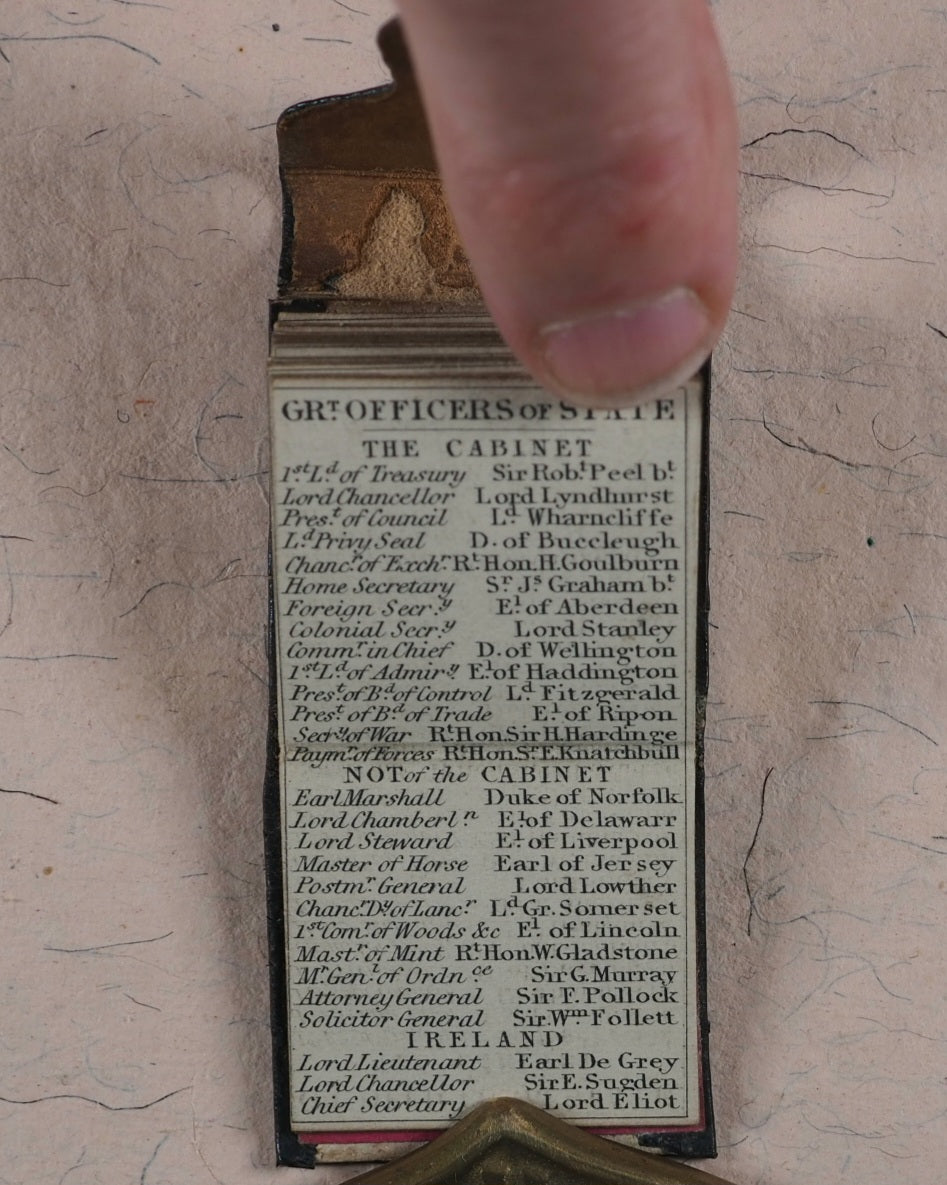 GRT. OFFICERS OF STATE
THE CABINET
1st. Ld. of Treasury Sir Robt. Peel bt.
Lord Chancellor Lord Lyndhurst
Prest. of Council Ld. Wharncliffe
Ld. Privy Seal D. of Buccleugh
Chancr. of Exchr. Rt. Hon. H. Goulburn
Home Secretary Sr. Js. Graham bt.
Foreign Secry. El. of Aberdeen
Colonial Secry. Lord Stanley
Commr. in Chief D. of Wellington
1st. Ld. of Admiry. El. of Haddington
Prest. of Bd. of Control Ld. Fitzgerald
Prest. of Bd. of Trade El. of Ripon
Secry. of War Rt. Hon. Sir H. Hardinge
Paymr. of Forces Rt. Hon. Sr. E. Knatchbull
NOT of the CABINET
Earl Marshall Duke of Norfolk
Lord Chamberln. El. of Delawarr
Lord Steward El. of Liverpool
Master of Horse Earl of Jersey
Postmr. General Lord Lowther
Chanc. Dy. of Lancr. Ld. Gr. Somerset
1st. Comr. of Woods &c El. of Lincoln
Mastr. of Mint Rt. Hon. W. Gladstone
Mr. Genl. of Ordnce. Sir G. Murray
Attorney General Sir F. Pollock
Solicitor General Sir. Wm. Follett
IRELAND
Lord Lieutenant Earl De Grey
Lord Chancellor Sir E. Sugden
Chief Secretary Lord Eliot